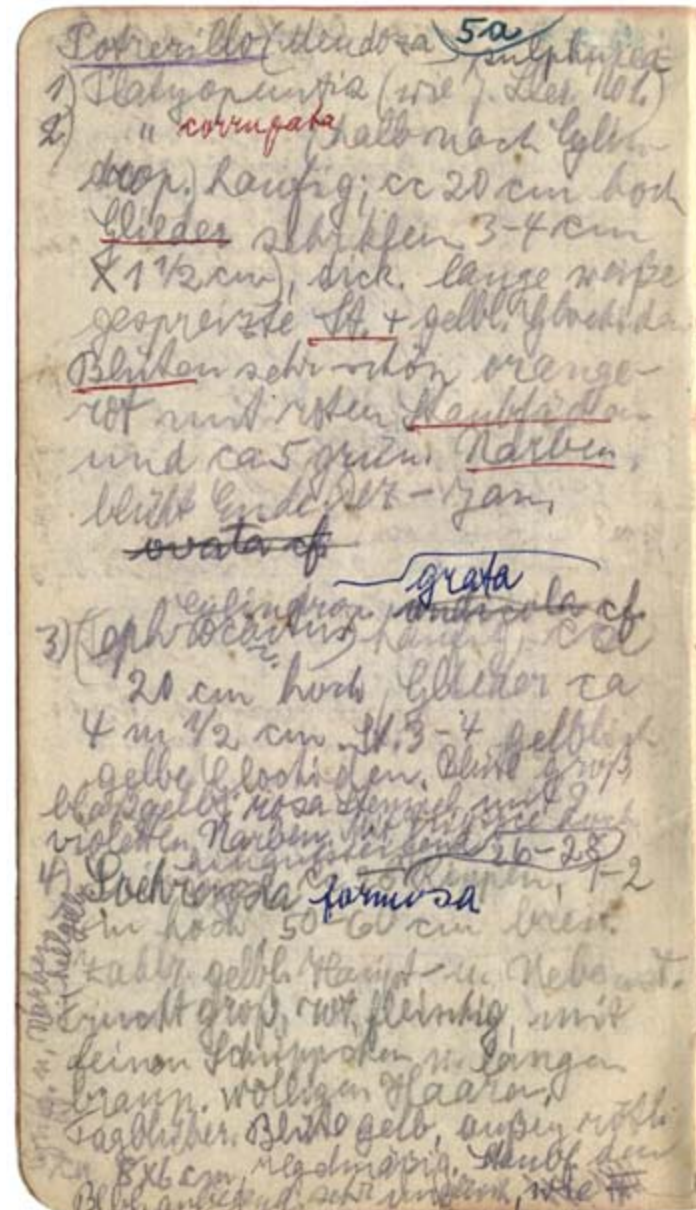 Potrerillo (Mendoza 5a
sulphurea
1) Platyopuntia (wie
2) " corrugata halb nach Cylin
drop.) häufig; cc 20 cm hoch
Glieder schiffein 3-4 cm
X 1 1/2 cm), dick. lange weiße
gespreizte St. + gelbl. Glochida
Blüten sehr schön orange-
rot mit roten Staubfäden
und ca 5 grün. Narben,
blüht Ende Dez - Jan,
ovata cf
grata
Cylindrop. andicola cf.
3) (Tephrocactus) häufig, cca
20 cm hoch, Glieder ca
4 m 1/2 cm. St. 3-4 gelblich
gelbe Glochiden. Blüte groß
blaßgelb, rosa Stempel mit
violetten Narben.
26-28
4) formosa Rippen, 1-2
m hoch 50-60 cm breit.
zahlr. gelbl. Haupt- u. Nebenst.
Frucht groß, rot, fleischig, mit
feinen Schüppchen u. langen
braun. wolligen Haaren.
Tagblüher. Blüte gelb, außen rötl.
8x6 cm, regelmäßig. Staubf. den
sehr wie